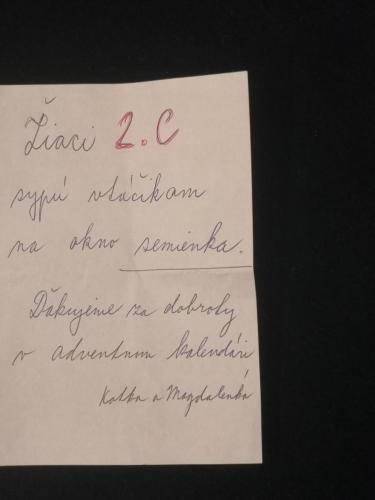 Žiaci 2.C
sypú vtáčikam
na okno semienka.
Ďakujeme za dobroty
v adventnom kalendári
Katka a Magdalenka